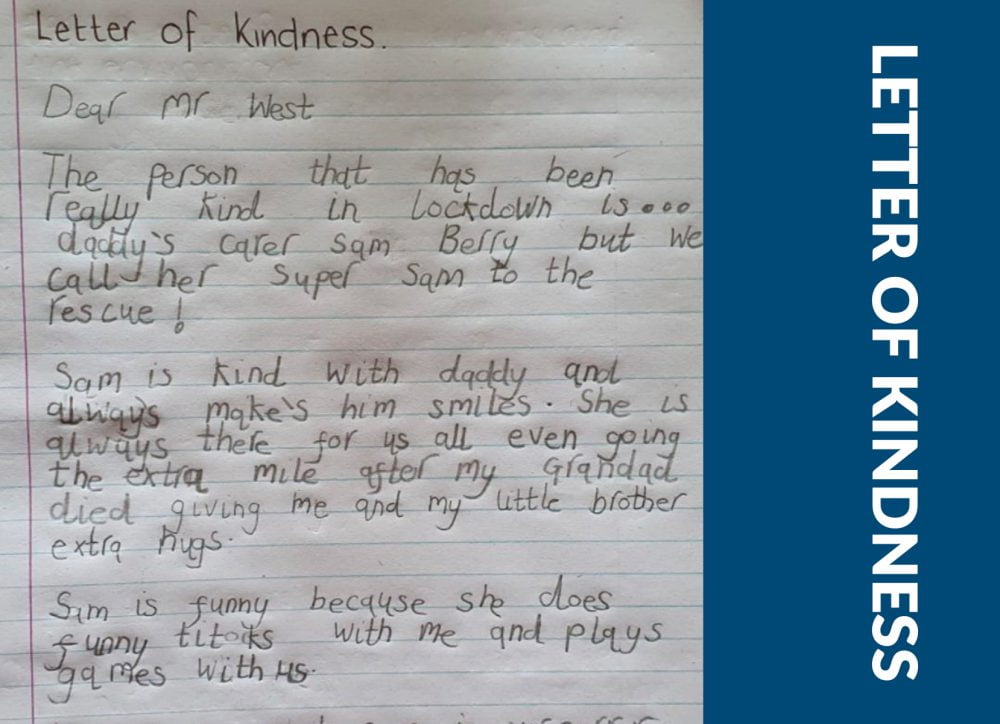 Letter of Kindness.
Dear Mr West
The person that has been
really kind in lockdown is...
daddy's carer Sam Berry but we
call her Super Sam to the
rescue!
Sam is kind with daddy and
always make's him smiles. She is
always there for us all even going
the extra mile after my Grandad
died giving me and my little brother
extra hugs.
Sam is funny because she does
funny titoks with me and plays
games with us.
LETTER OF KINDNESS